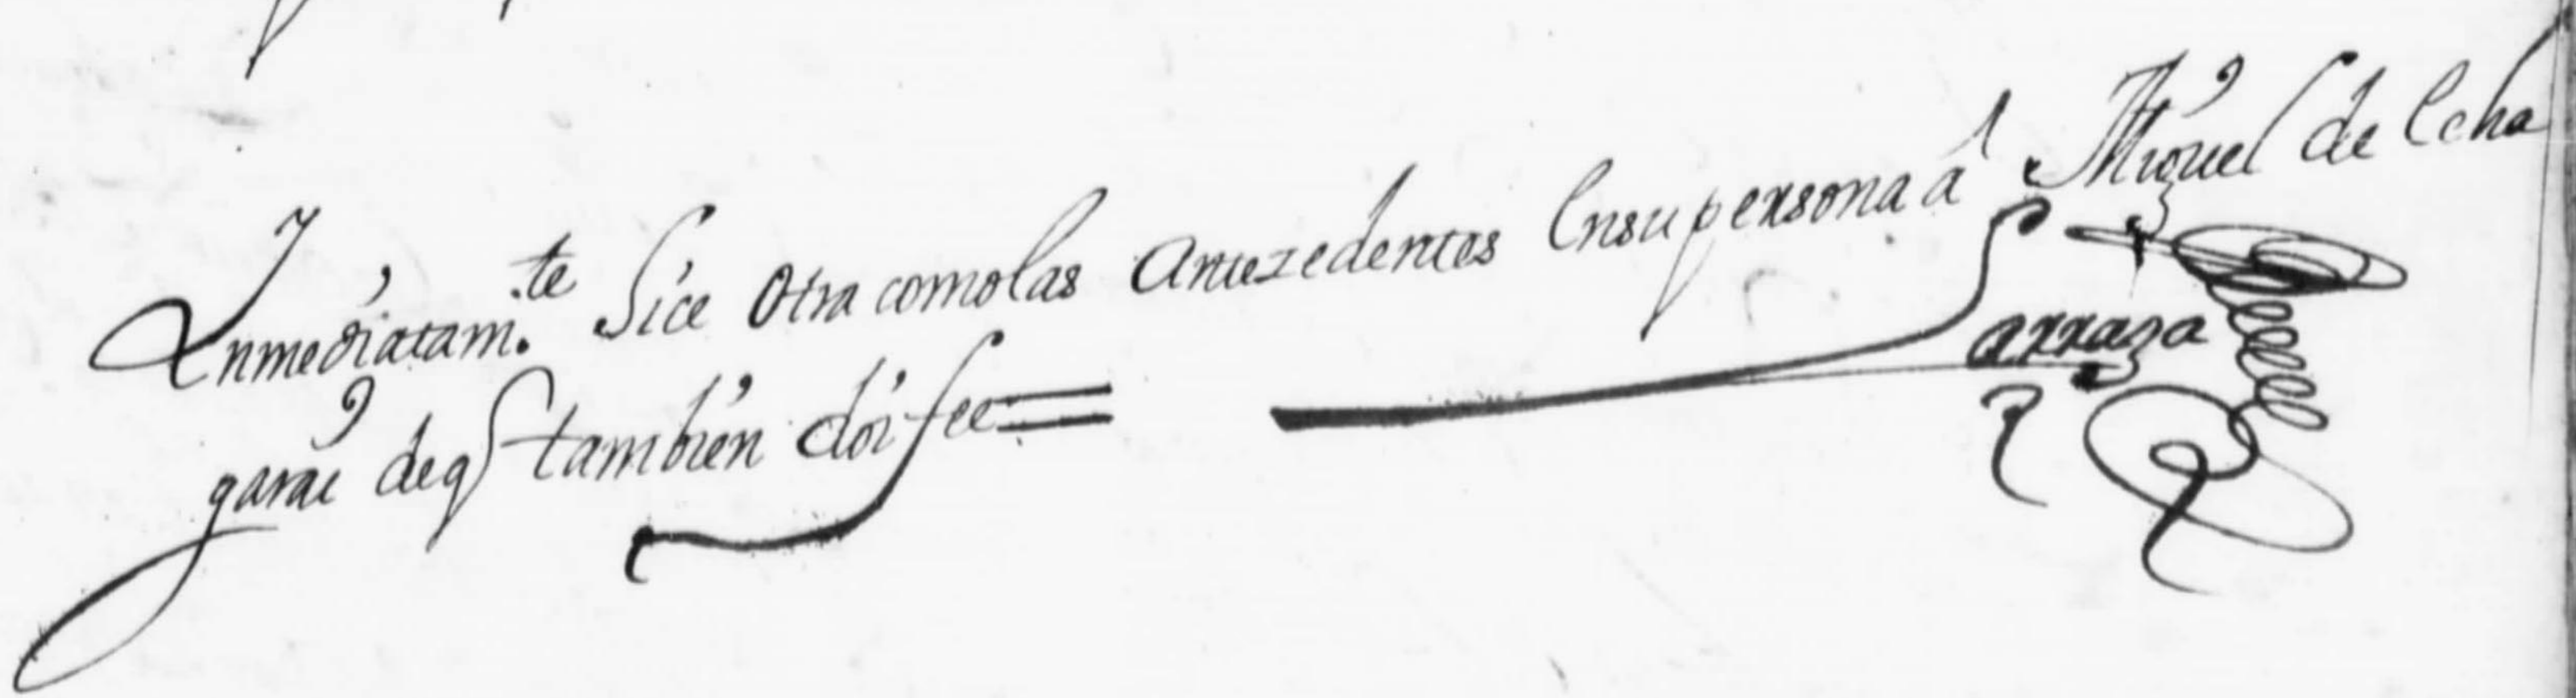 Inmediatam.te Hice Otra como las Antezedentes En su persona á Miguel de Echa
garai de q tambien doi fee =
arraza